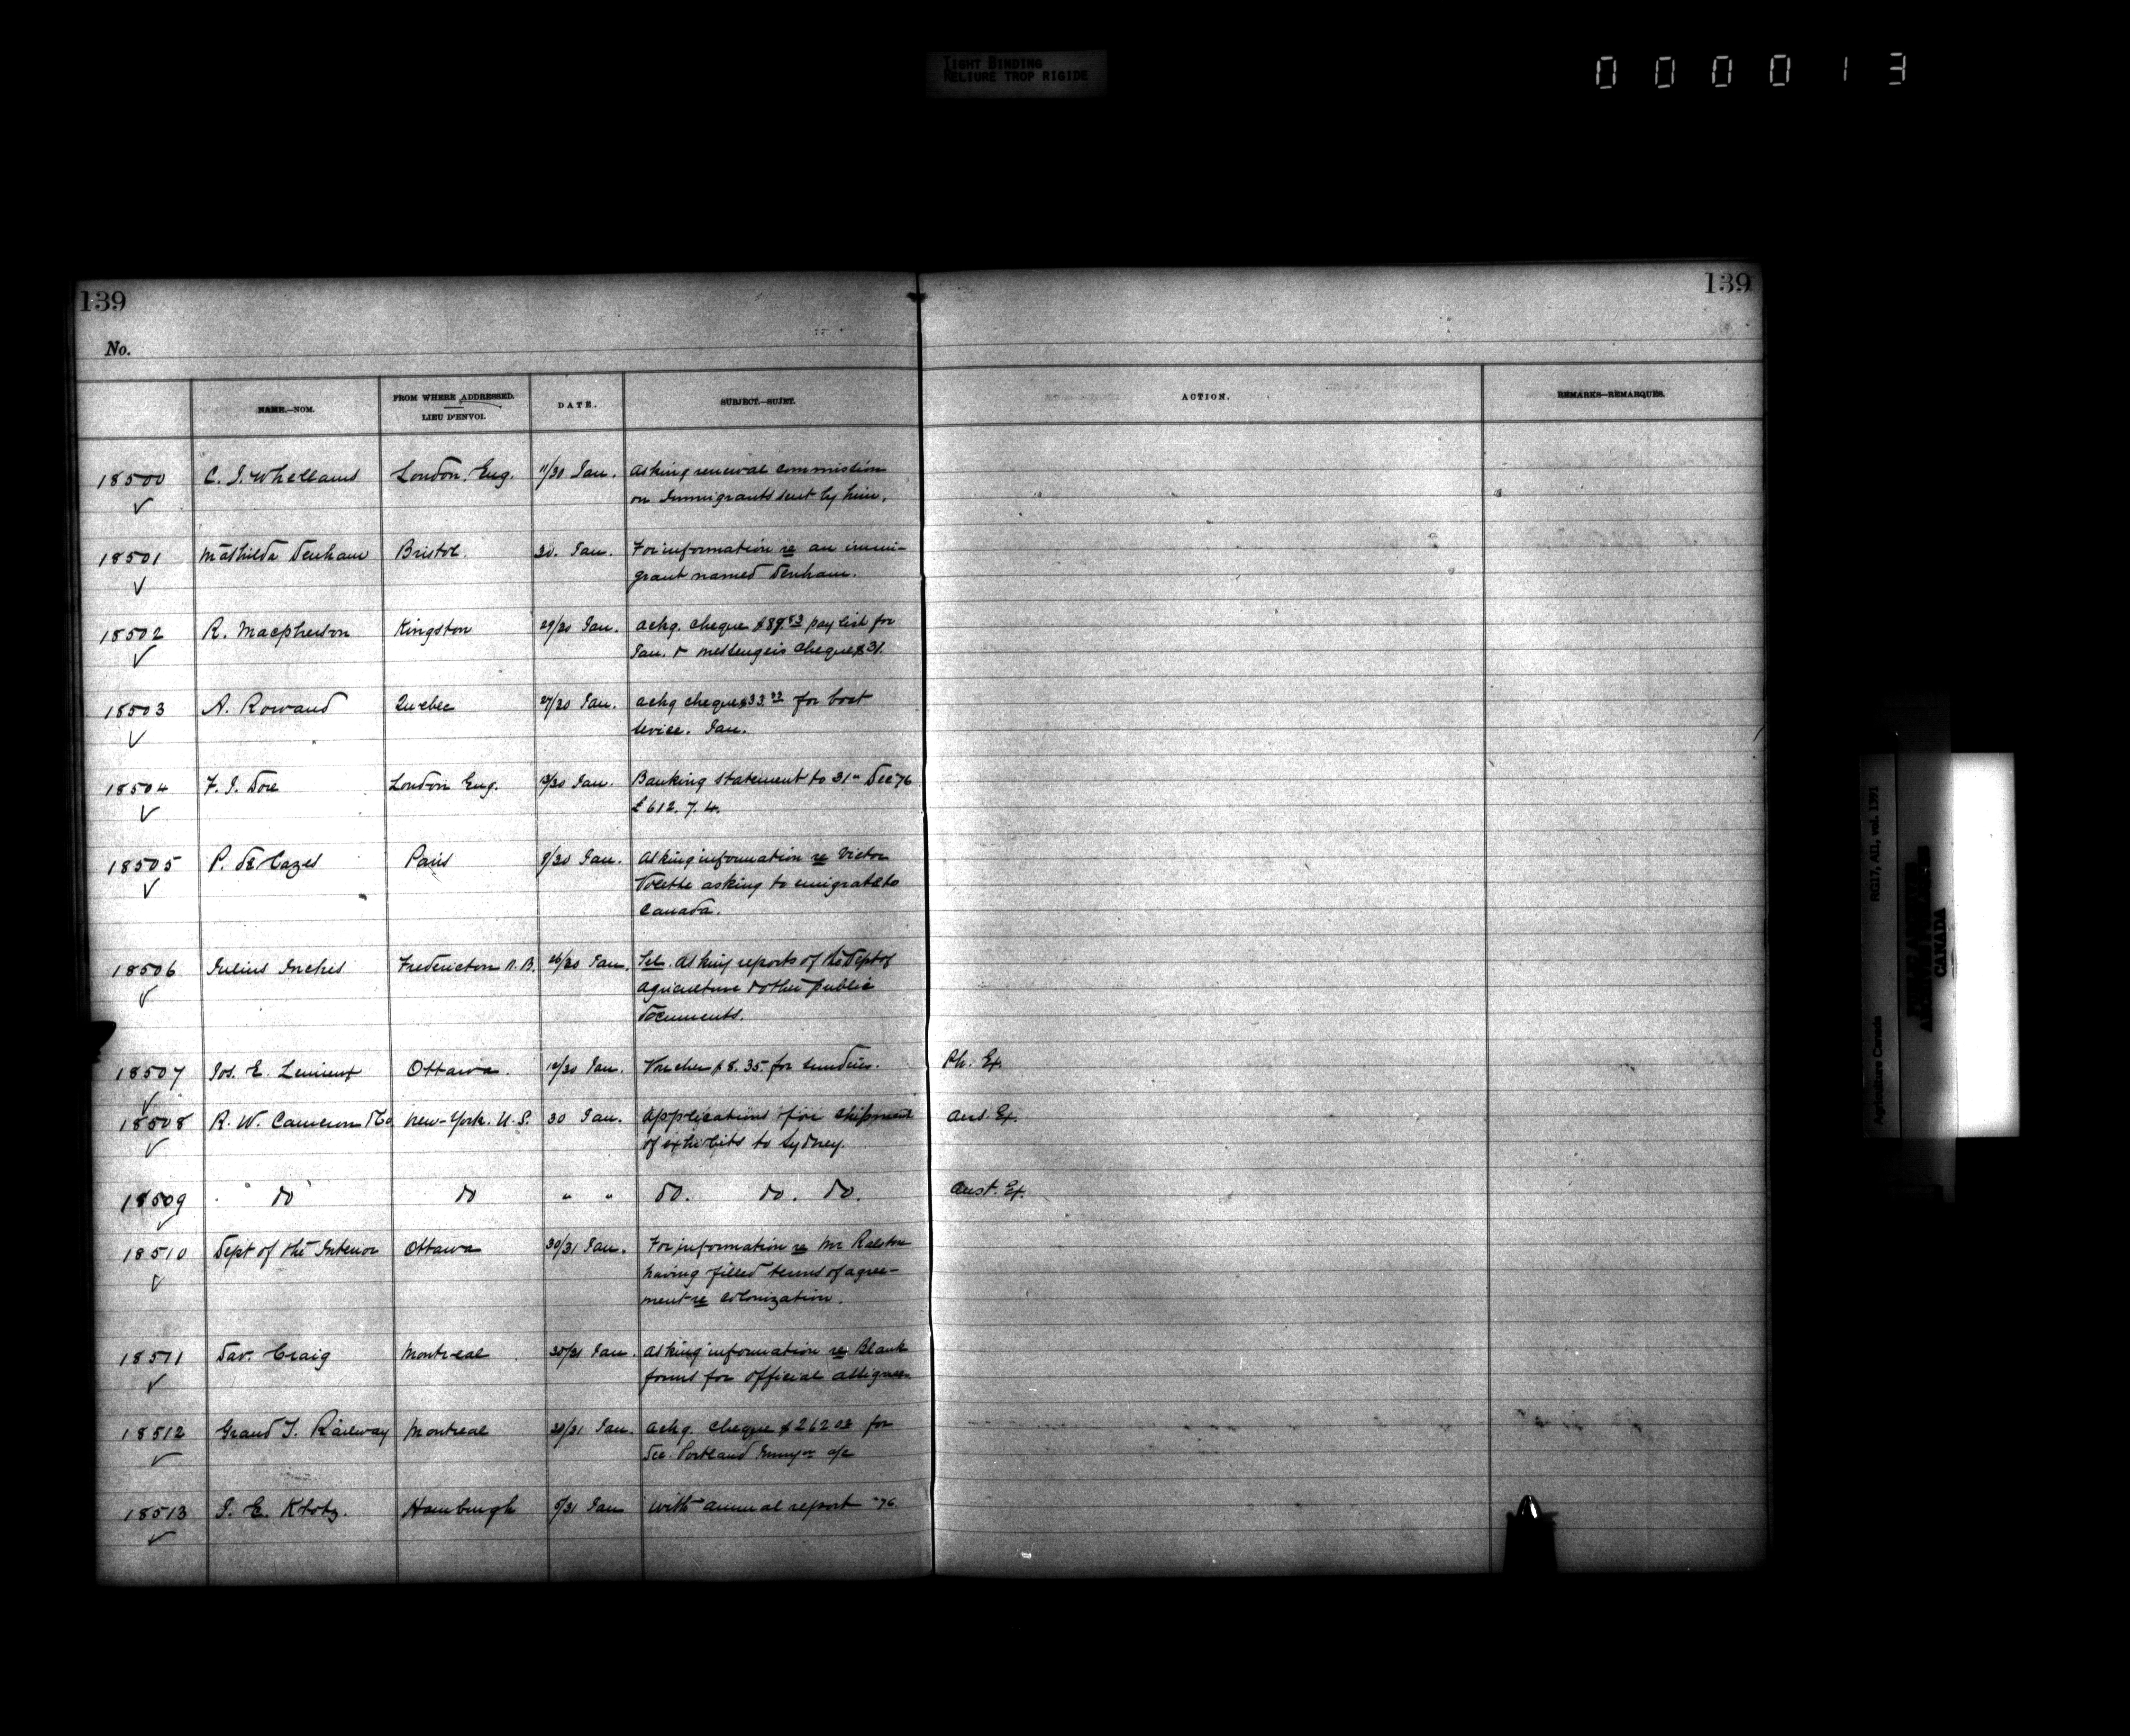 TIGHT BINDING
RELIURE TROP RIGIDE
000013
139
139
No.
NAME.—NOM.
FROM WHERE ADDRESSED.
LIEU D'ENVOI.
DATE.
SUBJECT.—SUJET.
ACTION.
REMARKS—REMARQUES.
18500 C. J. Whellams London, Eng. 11/30 Jan. Asking renewal commission
on Immigrants sent by him.
18501 Mathilda Denham Bristol. 30. Jan. For information re an immi-
grant named Denham.
18502 R. Macpherson Kingston 29/30 Jan. ackg. cheque pay list for
Jan. & messengers cheque $31.
18503 A. Rowand Quebec 27/30 Jan. ackg cheque $33.33 for boat
service. Jan.
18504 F. J. Dore London Eng. Jan. Banking statement to 31" Dec '76
£612. 7. 4.
18505 P. de Cazes Paris 8/30 Jan. Asking information re Victor
asking to emigrate to
Canada.
18506 Julius Inches Fredericton N. B. 26/30 Jan. Tel. Asking reports of the Dept of
Agriculture & other public
documents.
18507 Jos. E. Lemieux Ottawa. Jan. Voucher $8.35 for sundries. Ph. Ex.
18508 R. W. Cameron & Co New-York. U.S. 30 Jan. Applications for shipment
of exhibits to Sydney. Aus. Ex.
18509 " do do " " do. do. do. Aust. Ex.
18510 Dept of the Interior Ottawa 30/31 Jan. For information re Mr Ralston
having filled terms of agree-
ment re colonization.
18511 Dav. Craig Montreal 30/31 Jan. Asking information re Blank
forms for official assignees.
18512 Grand T. Railway Montreal 30/31 Jan. ackg. cheque $262 03 for
Dec. Portland a/c
18513 J. E. Klotz. Hamburgh Jan With annual report '76
RG17, AII, vol. 1391
Agriculture Canada
CANADA